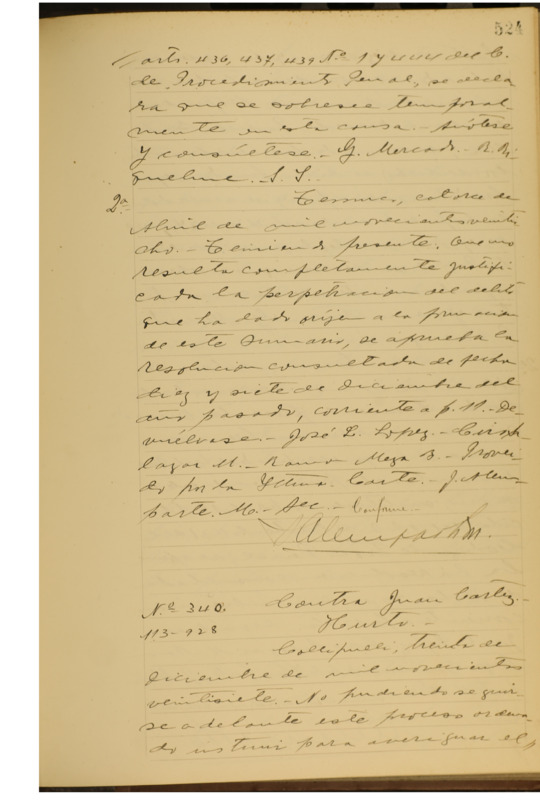 524
arts. 436, 437, 439 Nº 1 y 444 del C.
de Procedimiento Penal, se decla
ra que se sobresee temporal-
mente en esta causa.- Anótese
y consúltese.- G. Mercado.- R. Ri-
quelme. S. S.
2ª Temuco, catorce de
Abril de mil novecientos veinti
cho.- Teniendo presente: Que no
resulta completamente justifi-
cada la perpetracion del delito
que ha dado oríjen a la formacion
de este sumario, se aprueba la
resolucion consultada de fecha
diez y siete de diciembre del
año pasado, corriente a f. 11.- De-
vuélvase.- José L. Lopez.-
lagar M.- Ramon Meza B.- Provei-
do por la Iltma. Corte.- J. Alem-
parte. M.- Sec.- Conforme.-
Nº 340. Contra Juan Cortez.-
113-928 Hurto.-
Collipulli, treinta de
diciembre de mil novecientos
veintisiete.- No pudiendo seguir-
se adelante este proceso ordena-
do instruir para averiguar el